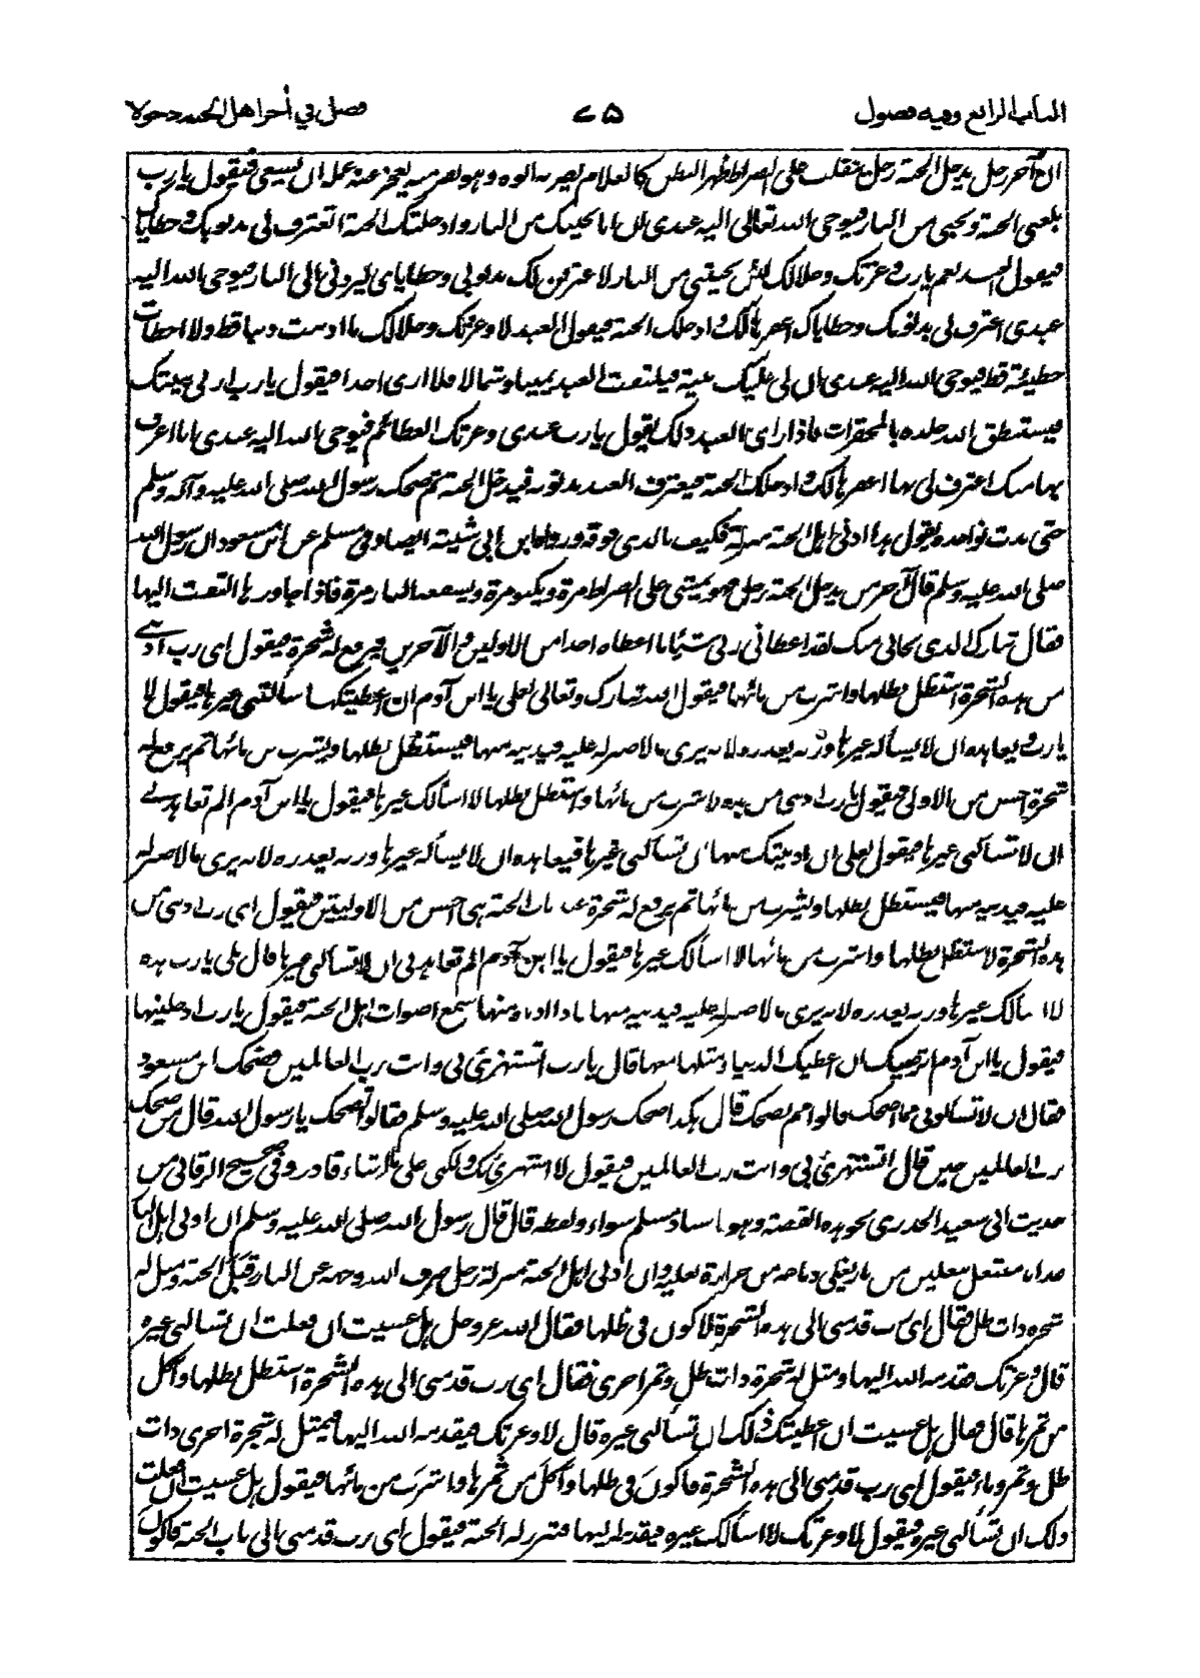 الباب الرابع وفيه فصول ٧٥ فصل في آخر أهل الجنة دخولا
ان آخر رجل يدخل الجنة رجل يتقلب على الصراط ظهر البطن كالغلام يضربه ابوه وهو يفر منه يعجز عنه عمله ان يسعى فيقول يا رب
بلغني الجنة ونجني من النار فيوحى الله تعالى اليه عبدي ان انا نجيتك من النار وادخلتك الجنة اتعترف لي بذنوبك وخطاياك
فيقول العبد نعم يا رب وعزتك وجلالك لئن نجيتني من النار لاعترفن لك بذنوبي وخطاياي فيوحى الله اليه
عبدي اعترف لي بذنوبك وخطاياك اغفرها لك وادخلك الجنة فيقول العبد لا وعزتك وجلالك ما اذنبت ذنبا قط ولا اخطأت
خطيئة قط فيوحى الله اليه عبدي ان لي عليك بينة فيلتفت العبد يمينا وشمالا فلا ارى احدا فيقول يا رب ارني بينتك
فيستنطق الله جلده بالمحقرات فاذا رأى العبد ذلك يقول يا رب عندي وعزتك العظائم فيوحى الله اليه عبدي انا اعرف
بها منك اعترف لي بها اغفرها لك وادخلك الجنة فيعترف العبد بذنوبه فيدخل الجنة ثم ضحك رسول الله صلى الله عليه وآله وسلم
حتى بدت نواجذه يقول هذا ادنى اهل الجنة منزلة فكيف بالذي فوقه ورواه ابن ابي شيبة ايضا وفي مسلم عن ابن مسعود ان رسول الله
صلى الله عليه وسلم قال آخر من يدخل الجنة رجل فهو يمشي على الصراط مرة ويكبو مرة وتسفعه النار مرة فاذا جاوزها التفت اليها
فقال تبارك الذي نجاني منك لقد اعطاني ربي شيئا ما اعطاه احدا من الاولين والآخرين فيرفع له شجرة فيقول اى رب ادنني
من هذه الشجرة استظل بظلها واشرب من مائها فيقول الله تبارك وتعالى لعلي يا ابن آدم ان اعطيتكها سألتني غيرها فيقول لا
يا رب ويعاهده ان لا يسأله غيرها وربه يعذره لانه يرى ما لا صبر له عليه فيدنيه منها فيستظل بظلها ويشرب من مائها ثم يرفع له
شجرة احسن من الاولى فيقول يا رب ادنني من هذه لاشرب من مائها واستظل بظلها لا اسألك غيرها فيقول يا ابن آدم الم تعاهدني
ان لا تسألني غيرها فيقول لعلي ان ادنيتك منها ان تسألني غيرها فيعاهده ان لا يسأله غيرها وربه يعذره لانه يرى ما لا صبر له
عليه فيدنيه منها فيستظل بظلها ويشرب من مائها ثم يرفع له شجرة عند باب الجنة هي احسن من الاوليين فيقول اى رب ادنني من
هذه الشجرة لاستظل بظلها واشرب من مائها لا اسألك غيرها فيقول يا ابن آدم الم تعاهدني ان لا تسألني غيرها قال بلى يا رب هذه
لا اسألك غيرها وربه يعذره لانه يرى ما لا صبر له عليه فيدنيه منها فاذا ادناه منها سمع اصوات اهل الجنة فيقول يا رب ادخلنيها
فيقول يا ابن آدم ايرضيك ان اعطيك الدنيا ومثلها معها قال يا رب اتستهزئ بي وانت رب العالمين فضحك ابن مسعود
فقال ان لا تسألوني مما اضحك قالوا مم تضحك قال هكذا ضحك رسول الله صلى الله عليه وسلم فقالوا مم تضحك يا رسول الله قال من ضحك
رب العالمين حين قال اتستهزئ بي وانت رب العالمين فيقول لا استهزئ بك ولكني على ما اشاء قادر وفي صحيح البرقاني من
حديث ابي سعيد الخدري نحو هذه القصة وهو باسناد مسلم سواء ولفظه قال قال رسول الله صلى الله عليه وسلم ان ادنى اهل النار
عذابا منتعل بنعلين من نار يغلي دماغه من حرارة نعليه وان ادنى اهل الجنة منزلة رجل صرف الله وجهه عن النار قبل الجنة ومثل له
شجرة ذات ظل فقال اى رب قدمني الى هذه الشجرة لاكون في ظلها فقال الله عز وجل هل عسيت ان فعلت ان تسألني غيره
قال لا وعزتك فقدمه الله اليها ومثل له شجرة ذات ظل وثمر اخرى فقال اى رب قدمني الى هذه الشجرة استظل بظلها وآكل
من ثمرها قال فقال هل عسيت ان اعطيتك ذلك ان تسألني غيره قال لا وعزتك فيقدمه الله اليها فيمثل له شجرة اخرى ذات
ظل وثمر وماء فيقول اى رب قدمني الى هذه الشجرة فاكون في ظلها وآكل من ثمرها واشرب من مائها فيقول هل عسيت ان فعلت
ذلك ان تسألني غيره فيقول لا وعزتك لا اسألك غيره فيقدمه اليها فتبرز له الجنة فيقول اى رب قدمني الى باب الجنة فاكون